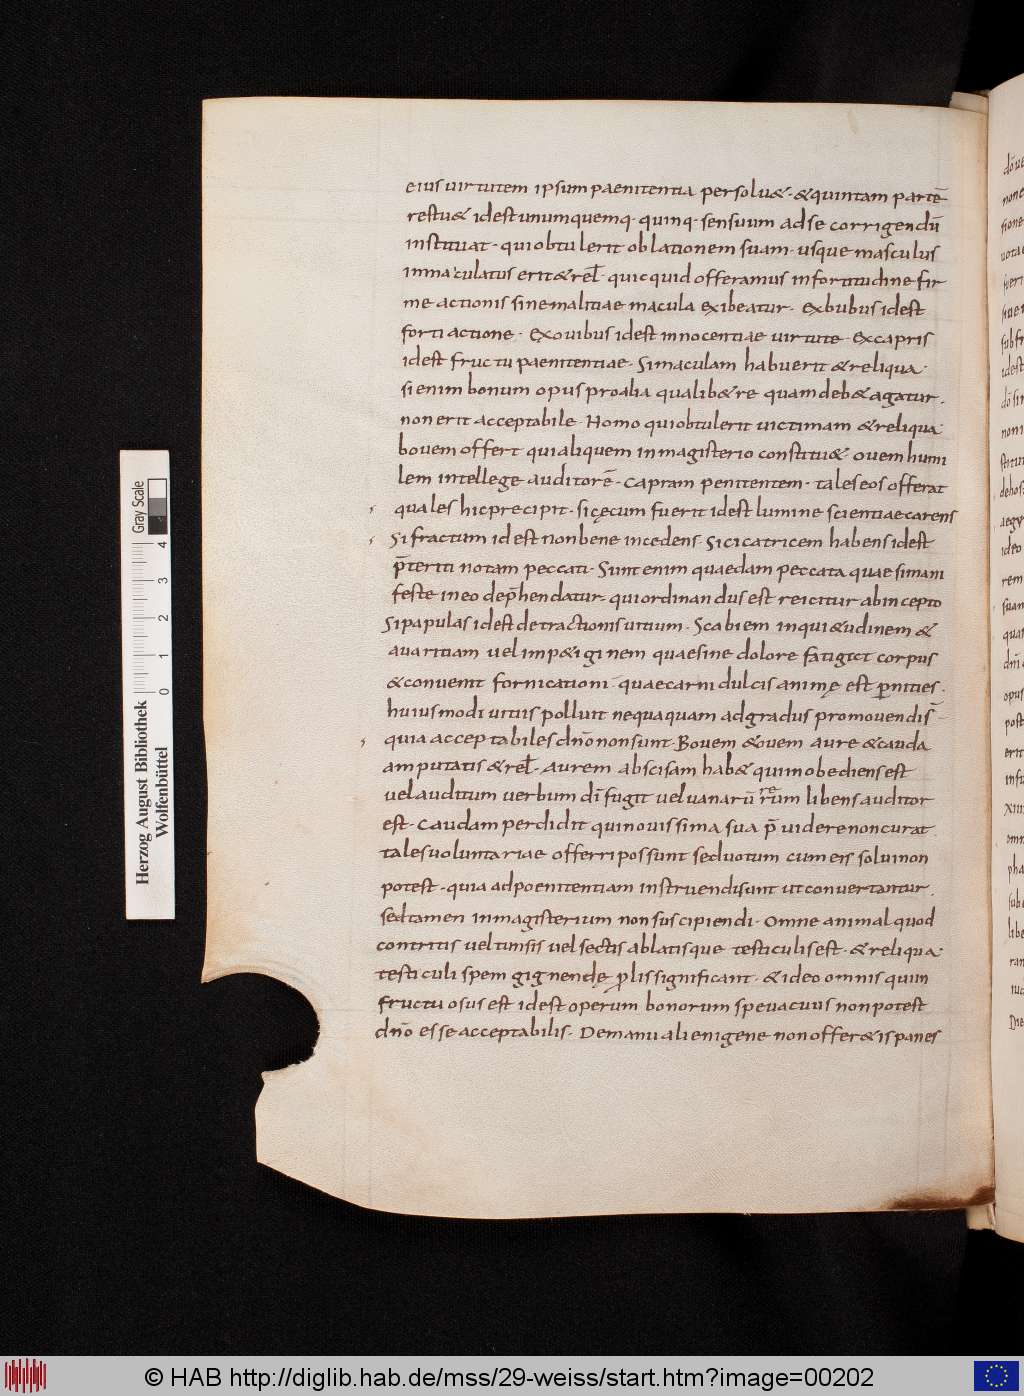 eius uirtutem ipsum paenitentia persolu&. & quintam partē
restu& id est unumquemq· quinq· sensuum ad se corrigendū
instituat· qui obtulerit oblationem suam· usque masculus
immaculatus erit & rel̄· quicquid offeramus in fortitudine fir
me actionis sine malitiae macula exibeatur· Ex bubus id est
forti actione· Ex ouibus id est innocentiae uirtute· Ex capris
id est fructu paenitentiae· Si maculam habuerit & reliqua·
si enim bonum opus pro alia qualib& re quam deb& agatur.
non erit acceptabile· Homo qui obtulerit uictimam & reliqua
bouem offert qui aliquem in magisterio constitu& ouem humi
lem intellege auditorē· Capram penitentem· tales eos offerat
quales hic precipit· si cęcum fuerit id est lumine scientiae carens
Si fractum id est non bene incedens· Si cicatricem habens id est
p̄teriti notam peccati· Sunt enim quaedam peccata quae si mani
feste in eo dep̄hendatur· qui ordinandus est reicitur ab incepto
Si papulas id est detractionis uitium· Scabiem inqui&udinem &
auaritiam uel imp&iginem quae sine dolore fatig& corpus
& conuenit fornicationi· quae carni dulcis animę est p̱nities.
huiusmodi uitiis polluit nequaquam ad gradus promouendis̄
quia acceptabiles dn̄o non sunt· Bouem & ouem aure & cauda
amputatis & rel̄· aurem abscisam hab& qui inobediens est
uel auditum uerbum dī fugit uel uanarū rerum libens auditor
est· Caudam perdidit qui nouissima sua p̄uidere non curat
tales uoluntariae offerri possunt sed uotum cum eis solui non
potest· quia ad poenitentiam instruendi sunt ut conuertantur.
sed tamen in magisterium non suscipiendi· Omne animal quod
contritis uel tunsis uel sectis ablatisque testiculis est· & reliqua·
testiculi spem gignendę p̱lis significant· & ideo omnis qui in
fructuosus est id est operum bonorum spe uacuus non potest
dn̄o esse acceptabilis· De manu alienigene non offer&is panes
Herzog August Bibliothek
Wolfenbüttel
0 1 2 3 4
Gray Scale
© HAB http://diglib.hab.de/mss/29-weiss/start.htm?image=00202